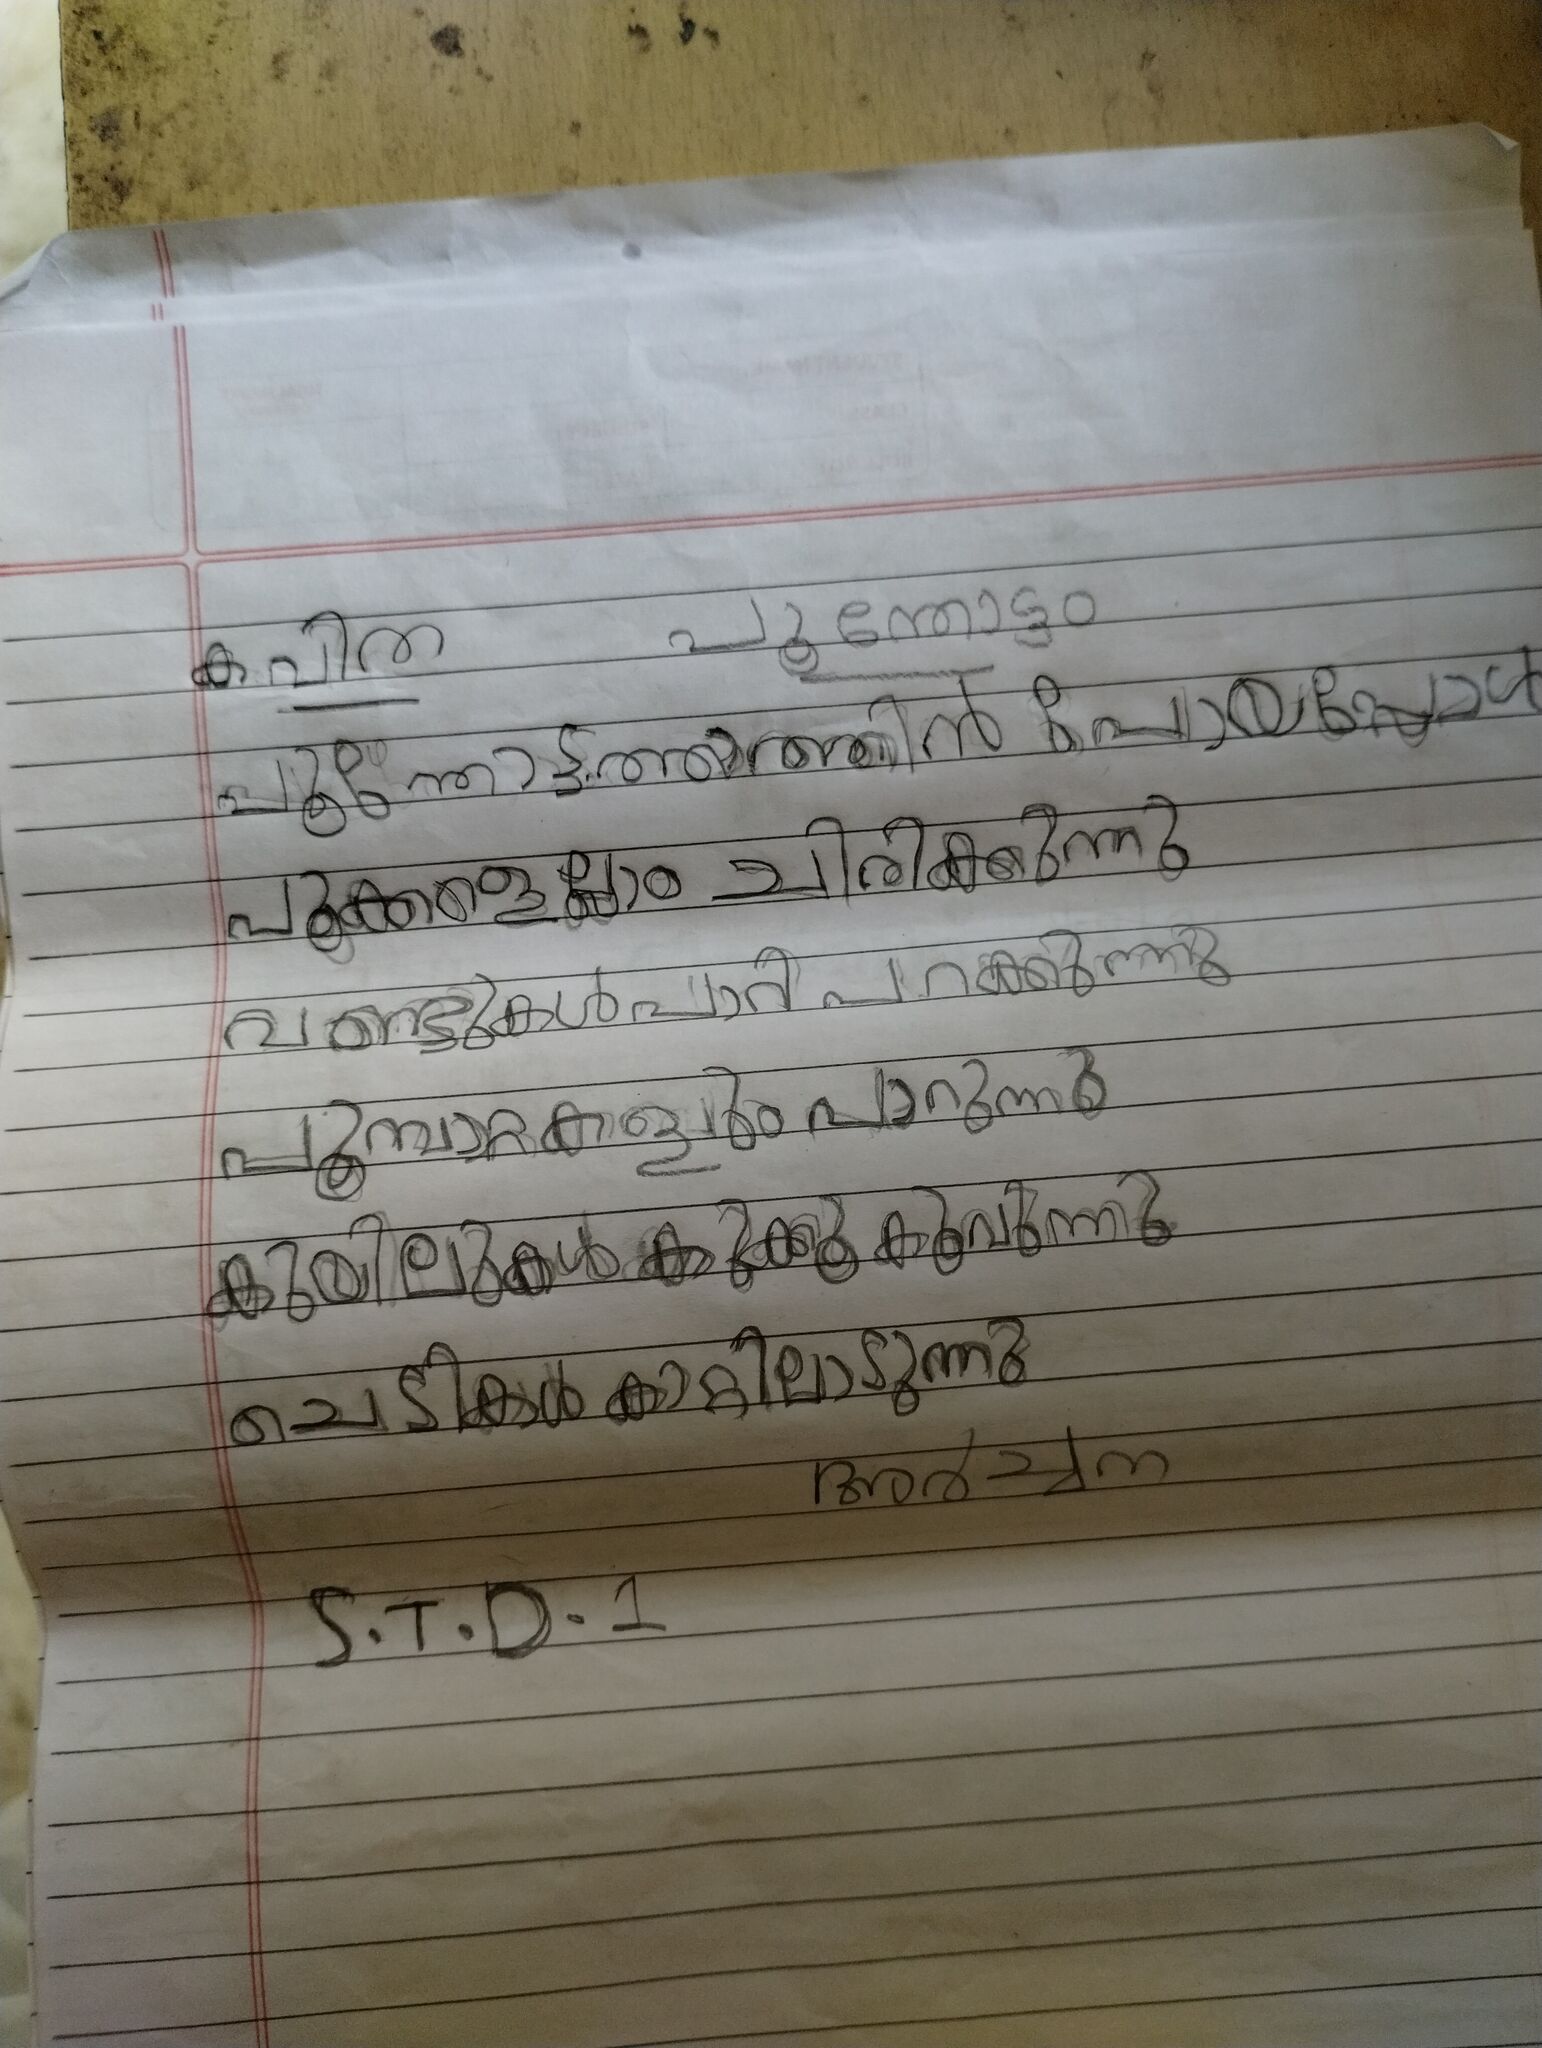 കവിത പൂന്തോട്ടം
പൂന്തോട്ടത്തിൻ പോയപ്പോൾ
പൂക്കളെല്ലാം ചിരിക്കുന്നു
വണ്ടുകൾ പാറി പറക്കുന്നു
പൂമ്പാറ്റകളും പാറുന്നു
കുയിലുകൾ കൂക്കൂ കൂവുന്നു
ചെടികൾ കാറ്റിലാടുന്നു
അർച്ചന
S.T.D.1